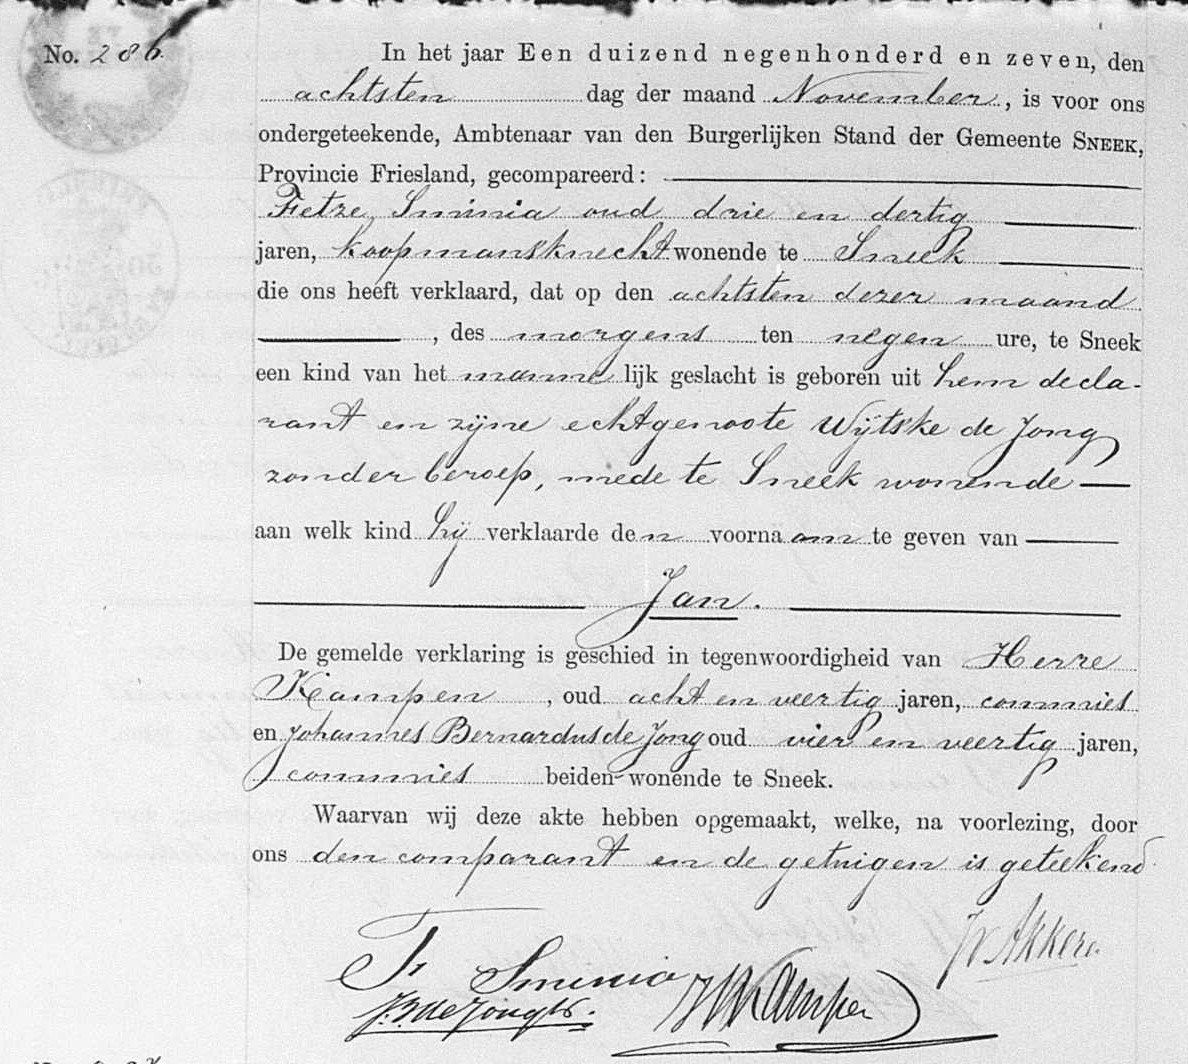 No. 286.
In het jaar Een duizend negenhonderd en zeven, den
achtsten dag der maand November, is voor ons
ondergeteekende, Ambtenaar van den Burgerlijken Stand der Gemeente SNEEK,
Provincie Friesland, gecompareerd:
Fetze Sminia oud drie en dertig
jaren, koopmansknecht wonende te Sneek
die ons heeft verklaard, dat op den achtsten dezer maand
, des morgens ten negen ure, te Sneek
een kind van het mannelijk geslacht is geboren uit hem decla-
rant en zijne echtgenoote Wijtske de Jong
zonder beroep, mede te Sneek wonende
aan welk kind hij verklaarde den voornaam te geven van
Jan.
De gemelde verklaring is geschied in tegenwoordigheid van Herre
Kampen, oud acht en veertig jaren, commies
en Johannes Bernardus de Jong oud vier en veertig jaren,
commies beiden wonende te Sneek.
Waarvan wij deze akte hebben opgemaakt, welke, na voorlezing, door
ons den comparant en de getuigen is geteekend
Akkers
Fr Sminia
HKampen
J.B. de Jong